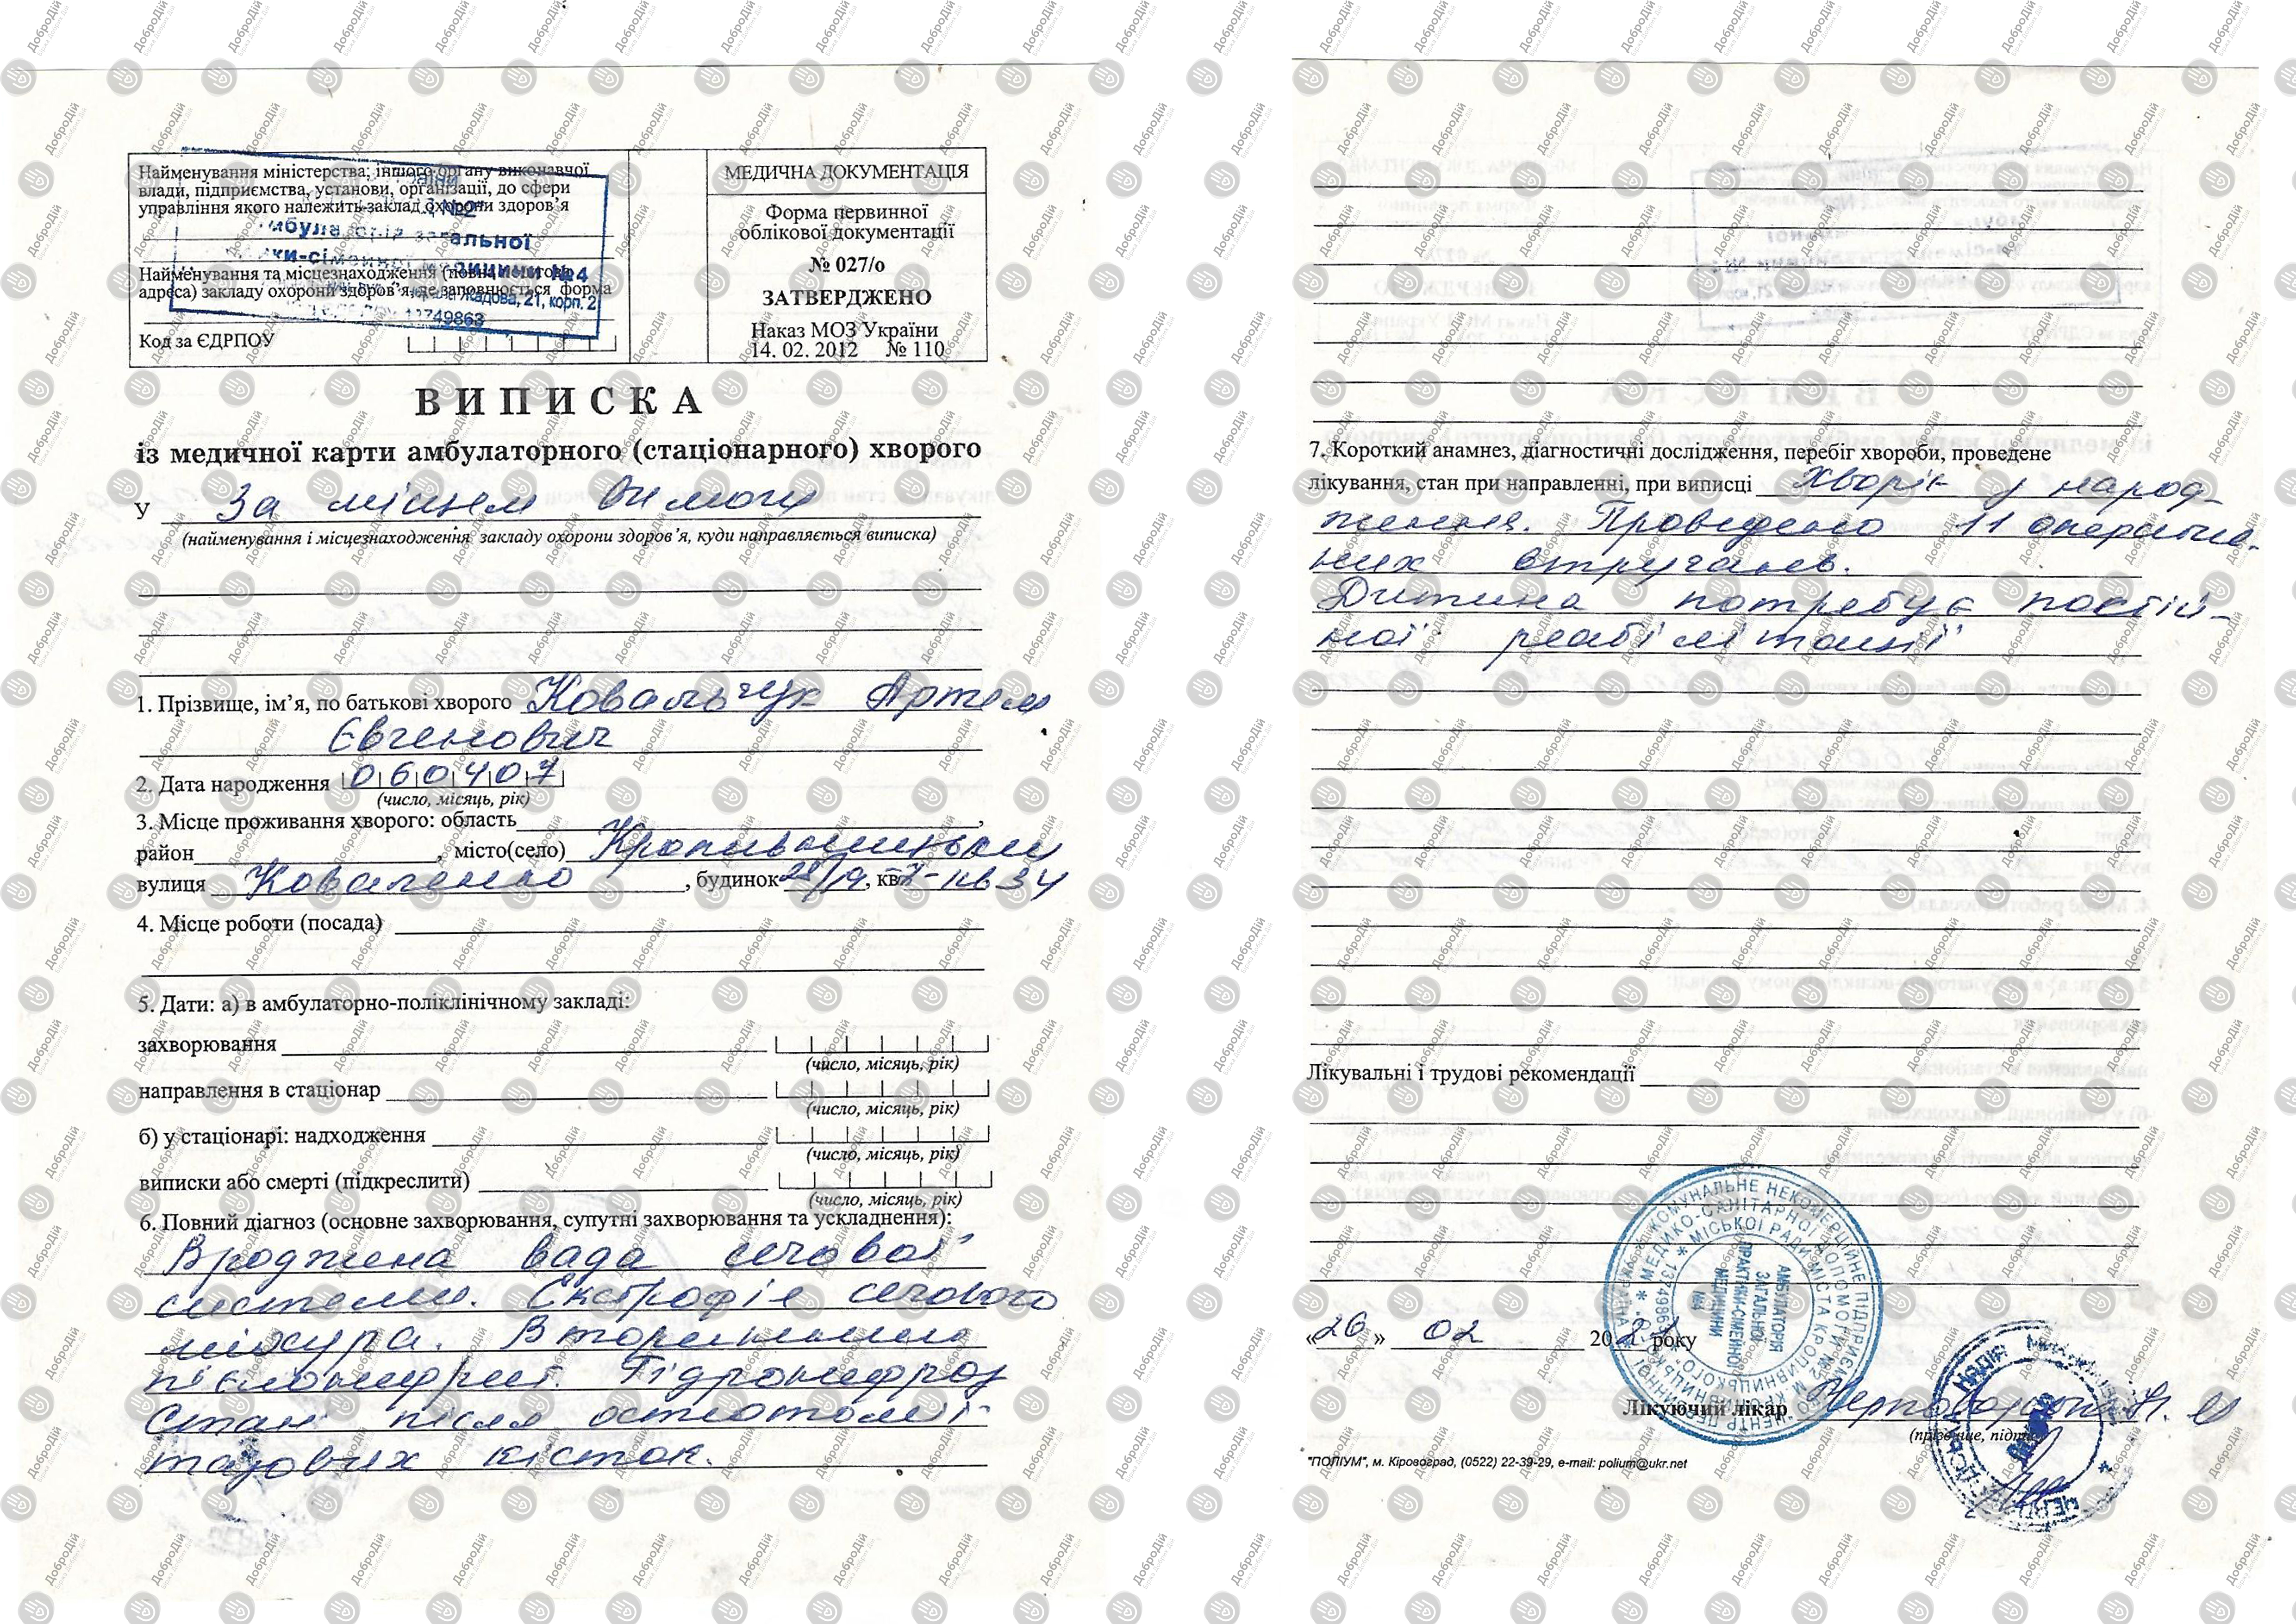 Найменування міністерства, іншого органу виконавчої
влади, підприємства, установи, організації, до сфери
управління якого належить заклад охорони здоров'я
№2"
загальної
медицини №4
Найменування та місцезнаходження (повна поштова
адреса) закладу охорони здоров'я, де заповнюється форма
Жадова, 21, корп. 2
13749863
Код за ЄДРПОУ
МЕДИЧНА ДОКУМЕНТАЦІЯ
Форма первинної
облікової документації
№ 027/о
ЗАТВЕРДЖЕНО
Наказ МОЗ України
14. 02. 2012 № 110
ВИПИСКА
із медичної карти амбулаторного (стаціонарного) хворого
У За місцем вимоги
(найменування і місцезнаходження закладу охорони здоров'я, куди направляється виписка)
1. Прізвище, ім'я, по батькові хворого Ковальчук Артем
Євгенович
2. Дата народження 060407
(число, місяць, рік)
3. Місце проживання хворого: область,
район, місто(село) Кропивницький
вулиця Коваленко, будинок 28/19, кв. 34
4. Місце роботи (посада)
5. Дати: а) в амбулаторно-поліклінічному закладі:
захворювання
(число, місяць, рік)
направлення в стаціонар
(число, місяць, рік)
б) у стаціонарі: надходження
(число, місяць, рік)
виписки або смерті (підкреслити)
(число, місяць, рік)
6. Повний діагноз (основне захворювання, супутні захворювання та ускладнення):
Вроджена вада сечової
системи. Екстрофія сечового
міхура. Вторинний
пієлонефрит. Гідронефроз
Стан після остеотомії
тазових кісток.
7. Короткий анамнез, діагностичні дослідження, перебіг хвороби, проведене
лікування, стан при направленні, при виписці Хворіє у народ-
ження. Проведено 11 оператив-
них втручань.
Дитина потребує постій-
ної реабілітації
Лікувальні і трудові рекомендації
«26» 02 2021 року
КОМУНАЛЬНЕ НЕКОМЕРЦІЙНЕ ПІДПРИЄМСТВО "ЦЕНТР ПЕРВИННОЇ
МЕДИКО-САНІТАРНОЇ ДОПОМОГИ №2 М.КРОПИВНИЦЬКОГО"
МІСЬКОЇ РАДИ МІСТА КРОПИВНИЦЬКОГО
АМБУЛАТОРІЯ
ЗАГАЛЬНОЇ
ПРАКТИКИ-СІМЕЙНОЇ
МЕДИЦИНИ
№4
Лікуючий лікар
(прізвище, підпис)
"ПОЛІУМ", м. Кіровоград, (0522) 22-39-29, e-mail: polium@ukr.net
ДоброДій